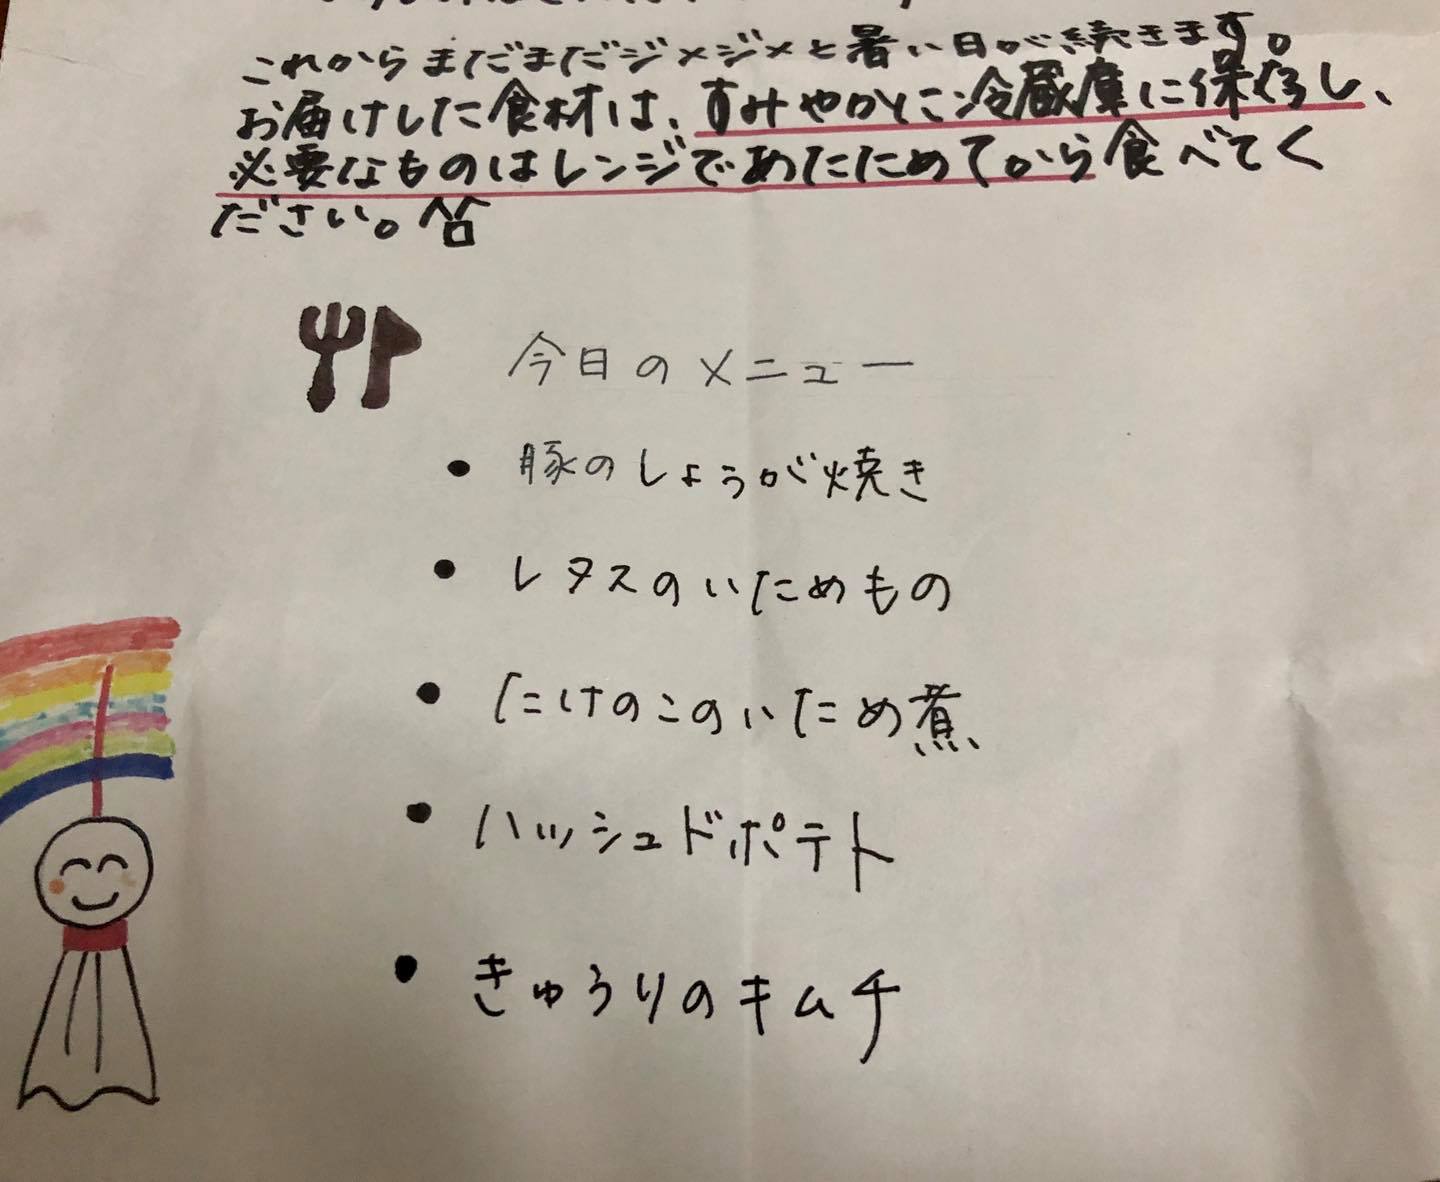 これからまだまだジメジメと暑い日が続きます。
お届けした食材は、すみやかに冷蔵庫に保存し、
必要なものはレンジであたためてから食べてく
ださい。
今日のメニュー
• 豚のしょうが焼き
• レタスのいためもの
• たけのこのいため煮
• ハッシュドポテト
• きゅうりのキムチ